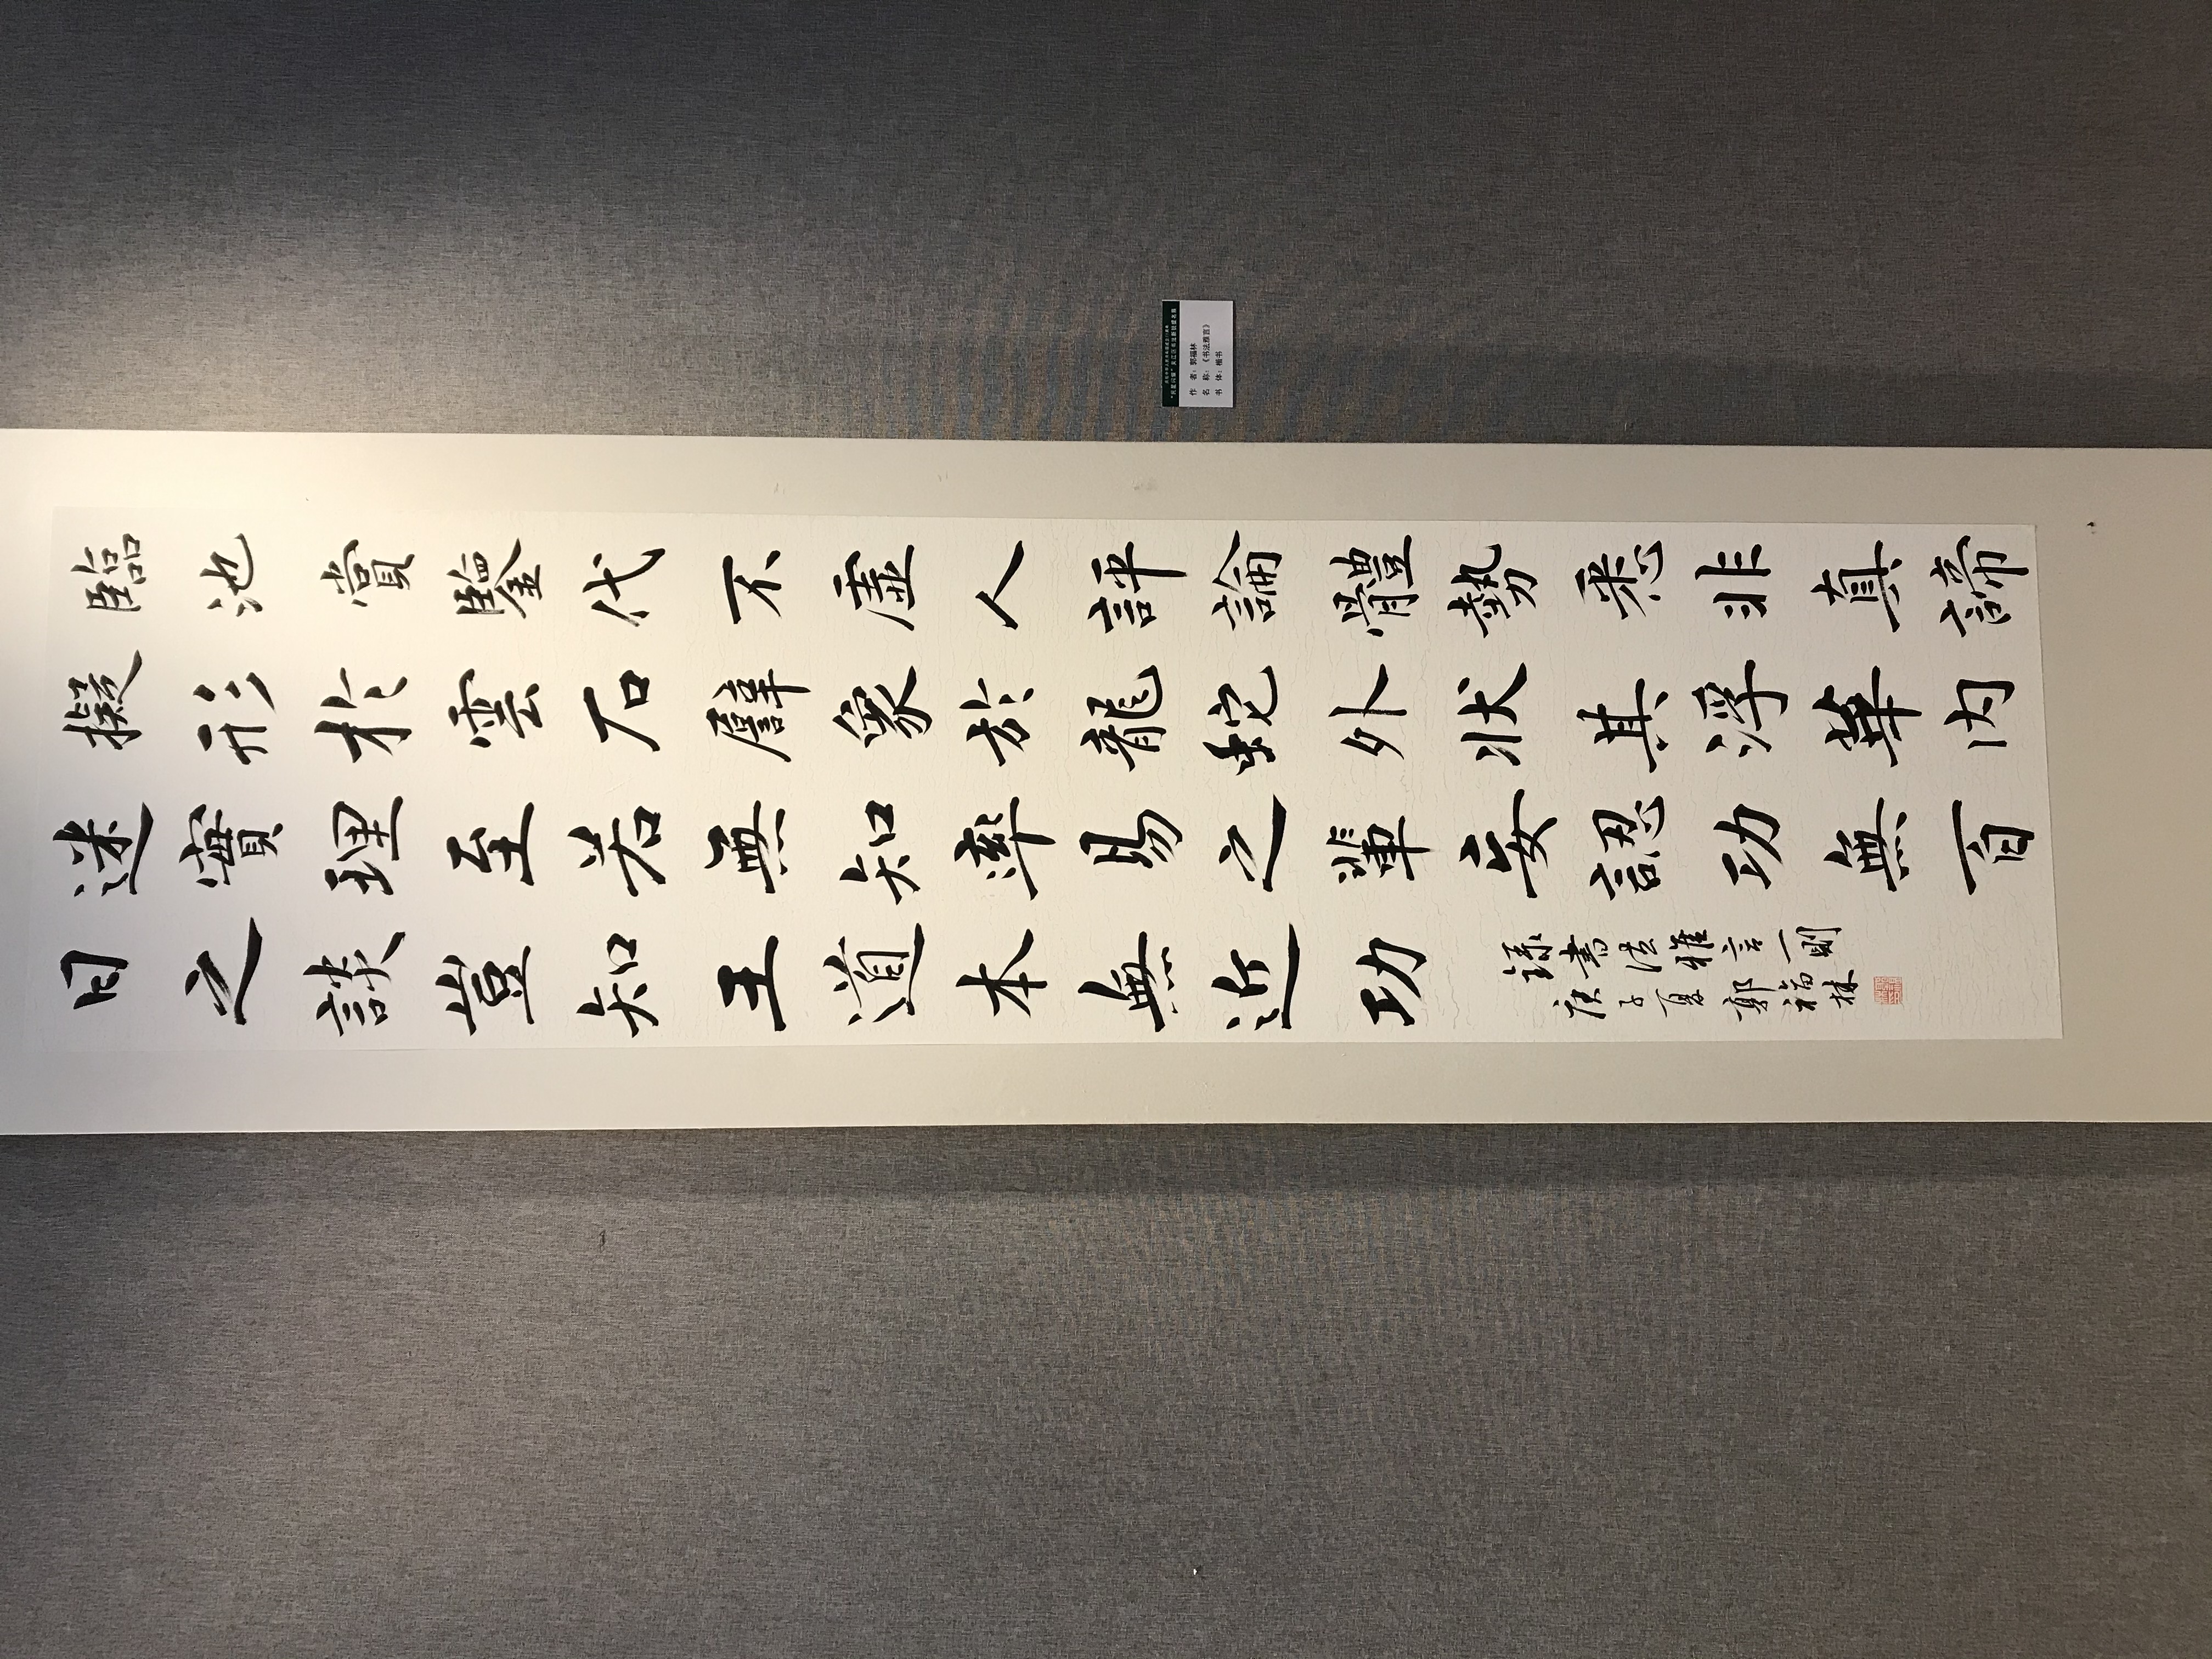 臨池賞鑒代不虛人評論體勢悉非真諦
擬形於雲石譬象於龍蛇外狀其浮華內
迷實理至若無知率易之輩妄認功無百
日之談豈知王道本無近功
録書法雅言一則
庚子夏郭福林
作 者：郭福林
名 称：《书法雅言》
书 体：楷书